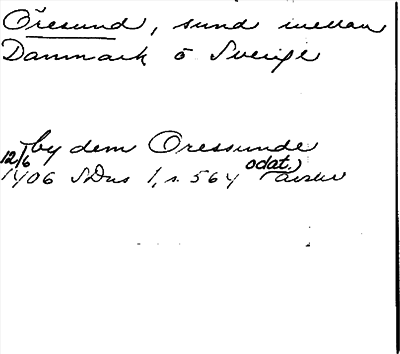 Öresund, sund mellan
Danmark o Sverige
by dem Oressunde
12/6 1406 SDns 1, s. 564 (odat.) avskr